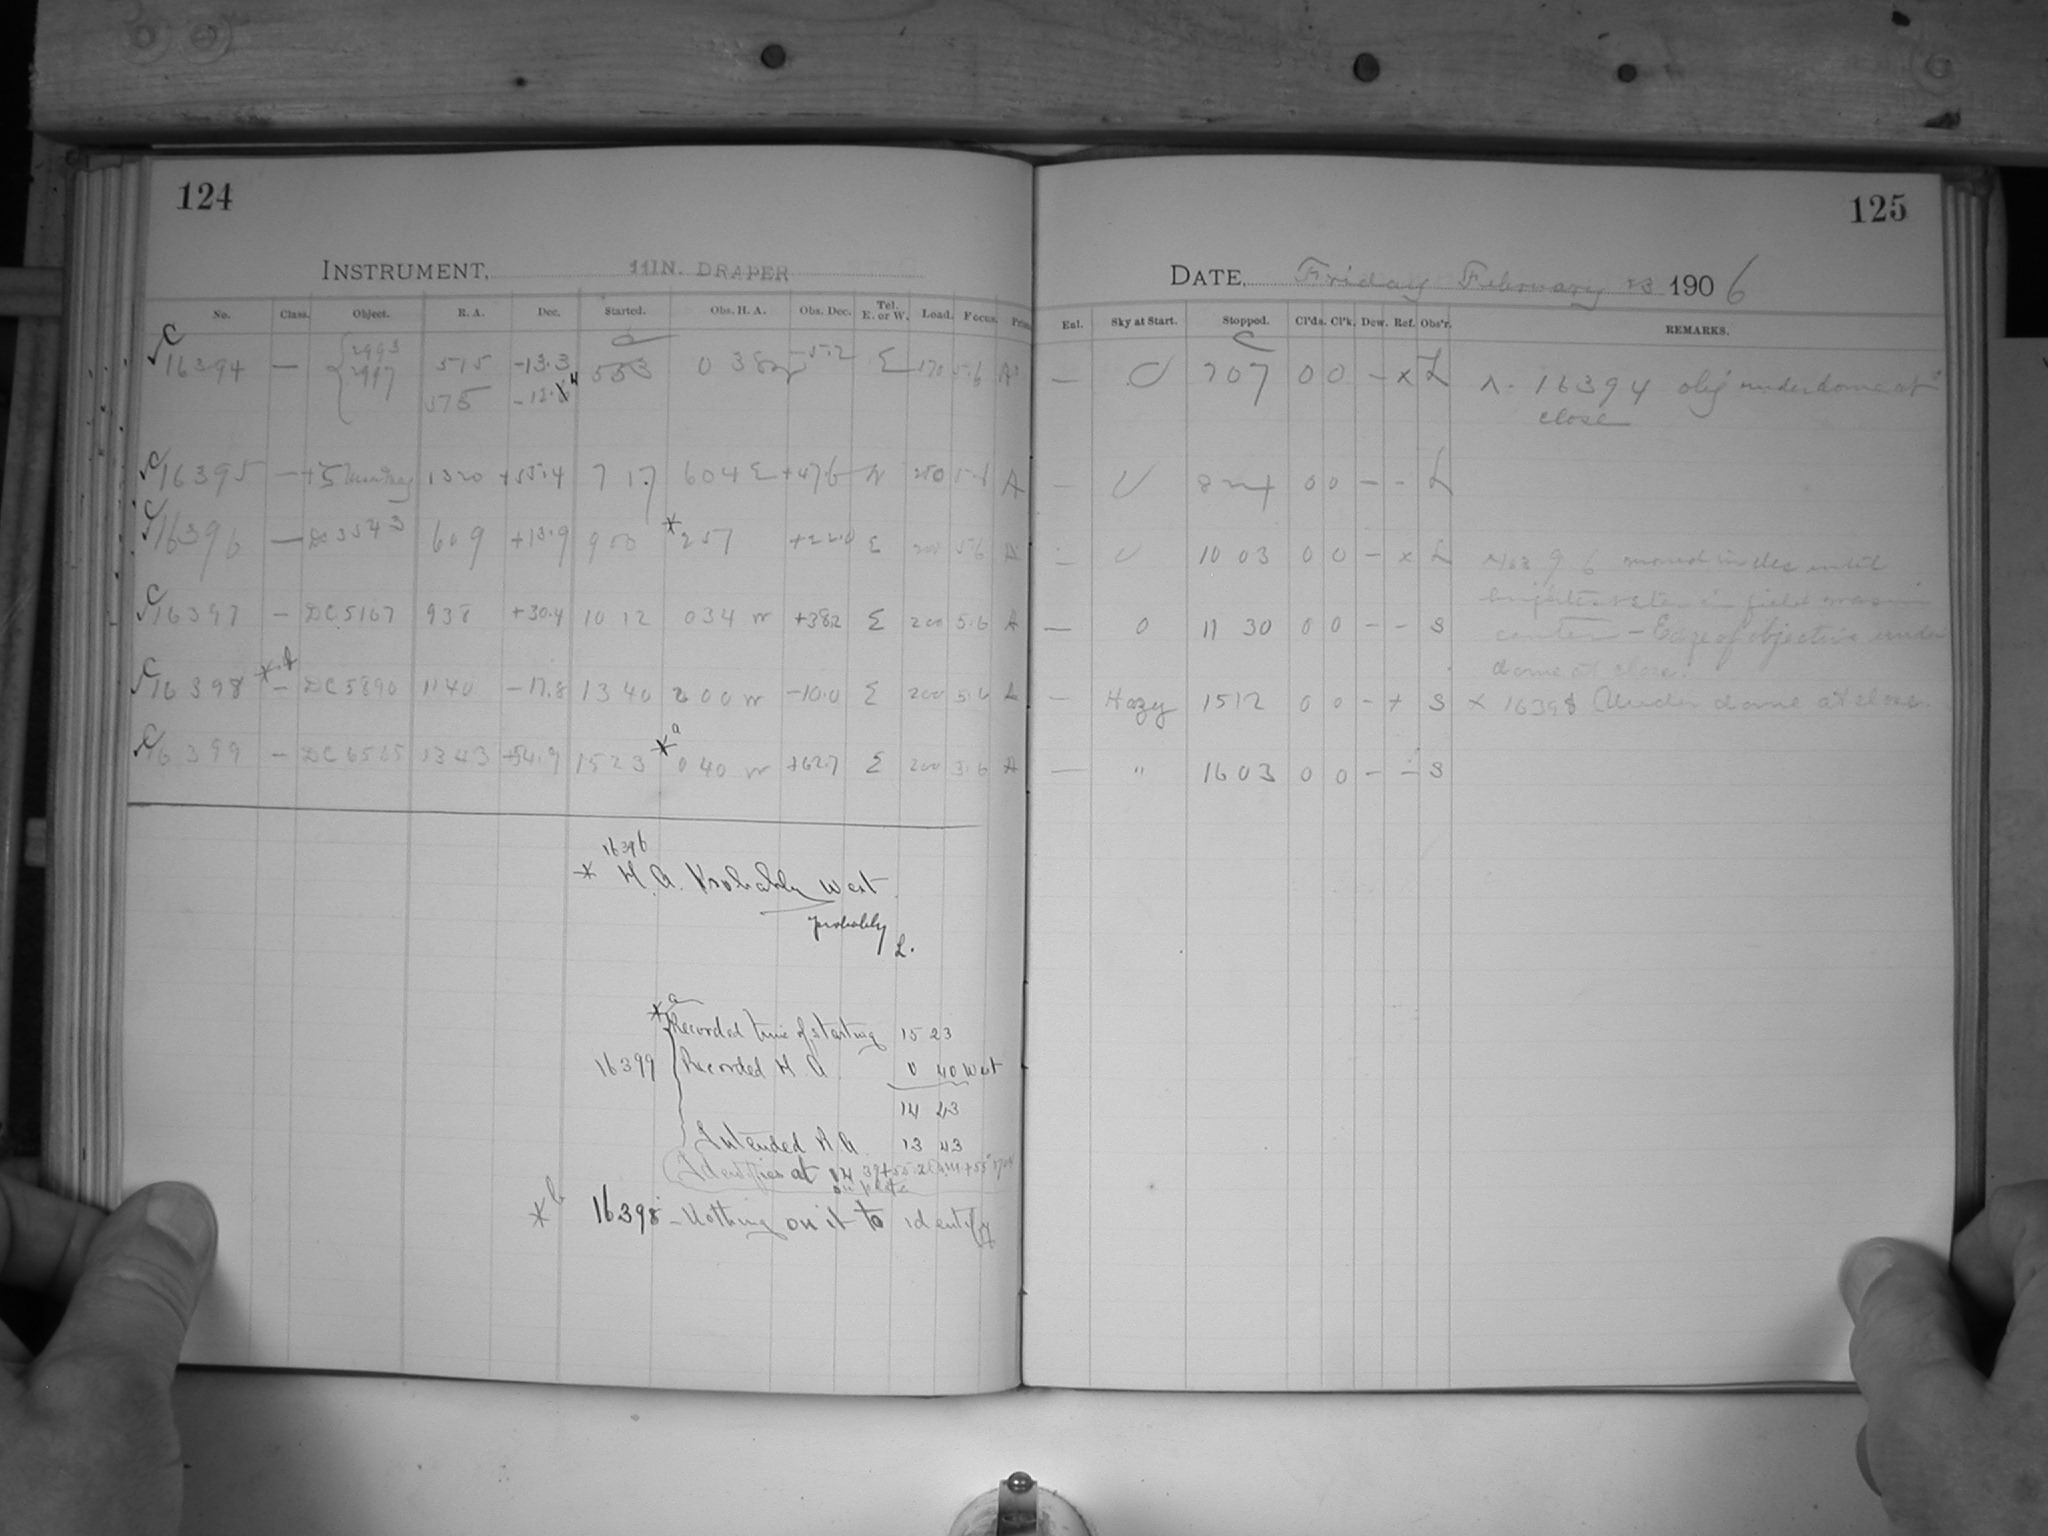 124
INSTRUMENT, 11IN. DRAPER
No. Class. Object. R. A. Dec. Started. Obs. H. A. Obs. Dec. Tel. E. or W. Load. Focus.
16394 — 2993 515 -13.3 553 0 38 -5.2 E 170 5.6 A
2997 575
16395 — 1320 +55.4 7 17 6 04 E +47.6 W 250 A
16396 — DC 3543 609 +13.9 950 * 2 57 +22.0 E 200 5.6 A
16397 — DC 5167 938 +30.4 10 12 0 34 W +38.2 E 200 5.6 A
16398 *b — DC 5890 1140 -17.8 13 40 2 00 W -10.0 E 200 5.6 A
16399 — DC 6525 1343 +54.9 15 23 *a 0 40 W +62.7 E 200 5.6 A
16396
* H. A. Probably West
probably
L.
*a Recorded time of starting 15 23
16399 Recorded H. A. 0 40 West
14 43
Intended R A 13 43
Identifies at 14 39
on plate
*b 16398 - Nothing on it to identify
125
DATE, Friday February 23 1906
Eal. Sky at Start. Stopped. Cl'ds. Cl'k. Dew. Ref. Obs'r. REMARKS.
— 707 0 0 — x L 16394 obj under dome at
close
— 8 0 0 — - L
— 10 03 0 0 — x L 16396 moved in dec until
brightest star in field was in
— 0 11 30 0 0 - - S center - Edge of objective under
dome at close.
— Hazy 1512 0 0 - + S x 16398 Under dome at close.
— " 1603 0 0 - - S